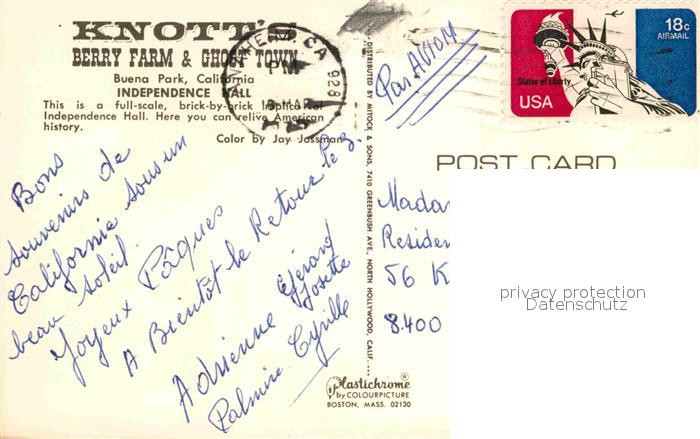 KNOTT'S
BERRY FARM & GHOST TOWN
Buena Park, California
INDEPENDENCE HALL
This is a full-scale, brick-by-brick replica of
Independence Hall. Here you can relive American
history.
Color by Jay Jossman
Bons
souvenirs de
Californie sous un
beau soleil.
Joyeux Pâques
A Bientôt le Retour le 3.
Adrienne Gérard
Josette
Palmire Cyrille
DISTRIBUTED BY MITOCK & SONS, 7410 GREENBUSH AVE., NORTH HOLLYWOOD, CALIF.
Plastichrome®
by COLOURPICTURE
BOSTON, MASS. 02130
CA 928
PM
Par AVION
18c
AIRMAIL
Statue of Liberty
USA
POST CARD
Mada
Residen
56 K
8400
privacy protection
Datenschutz